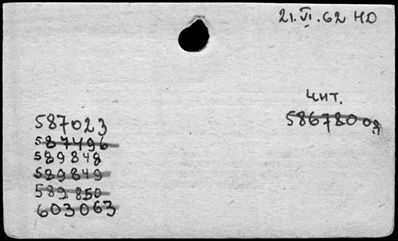 21.VI.62 НО
чит.
586780 оя
587023
587496
589848
589849
589850
603063